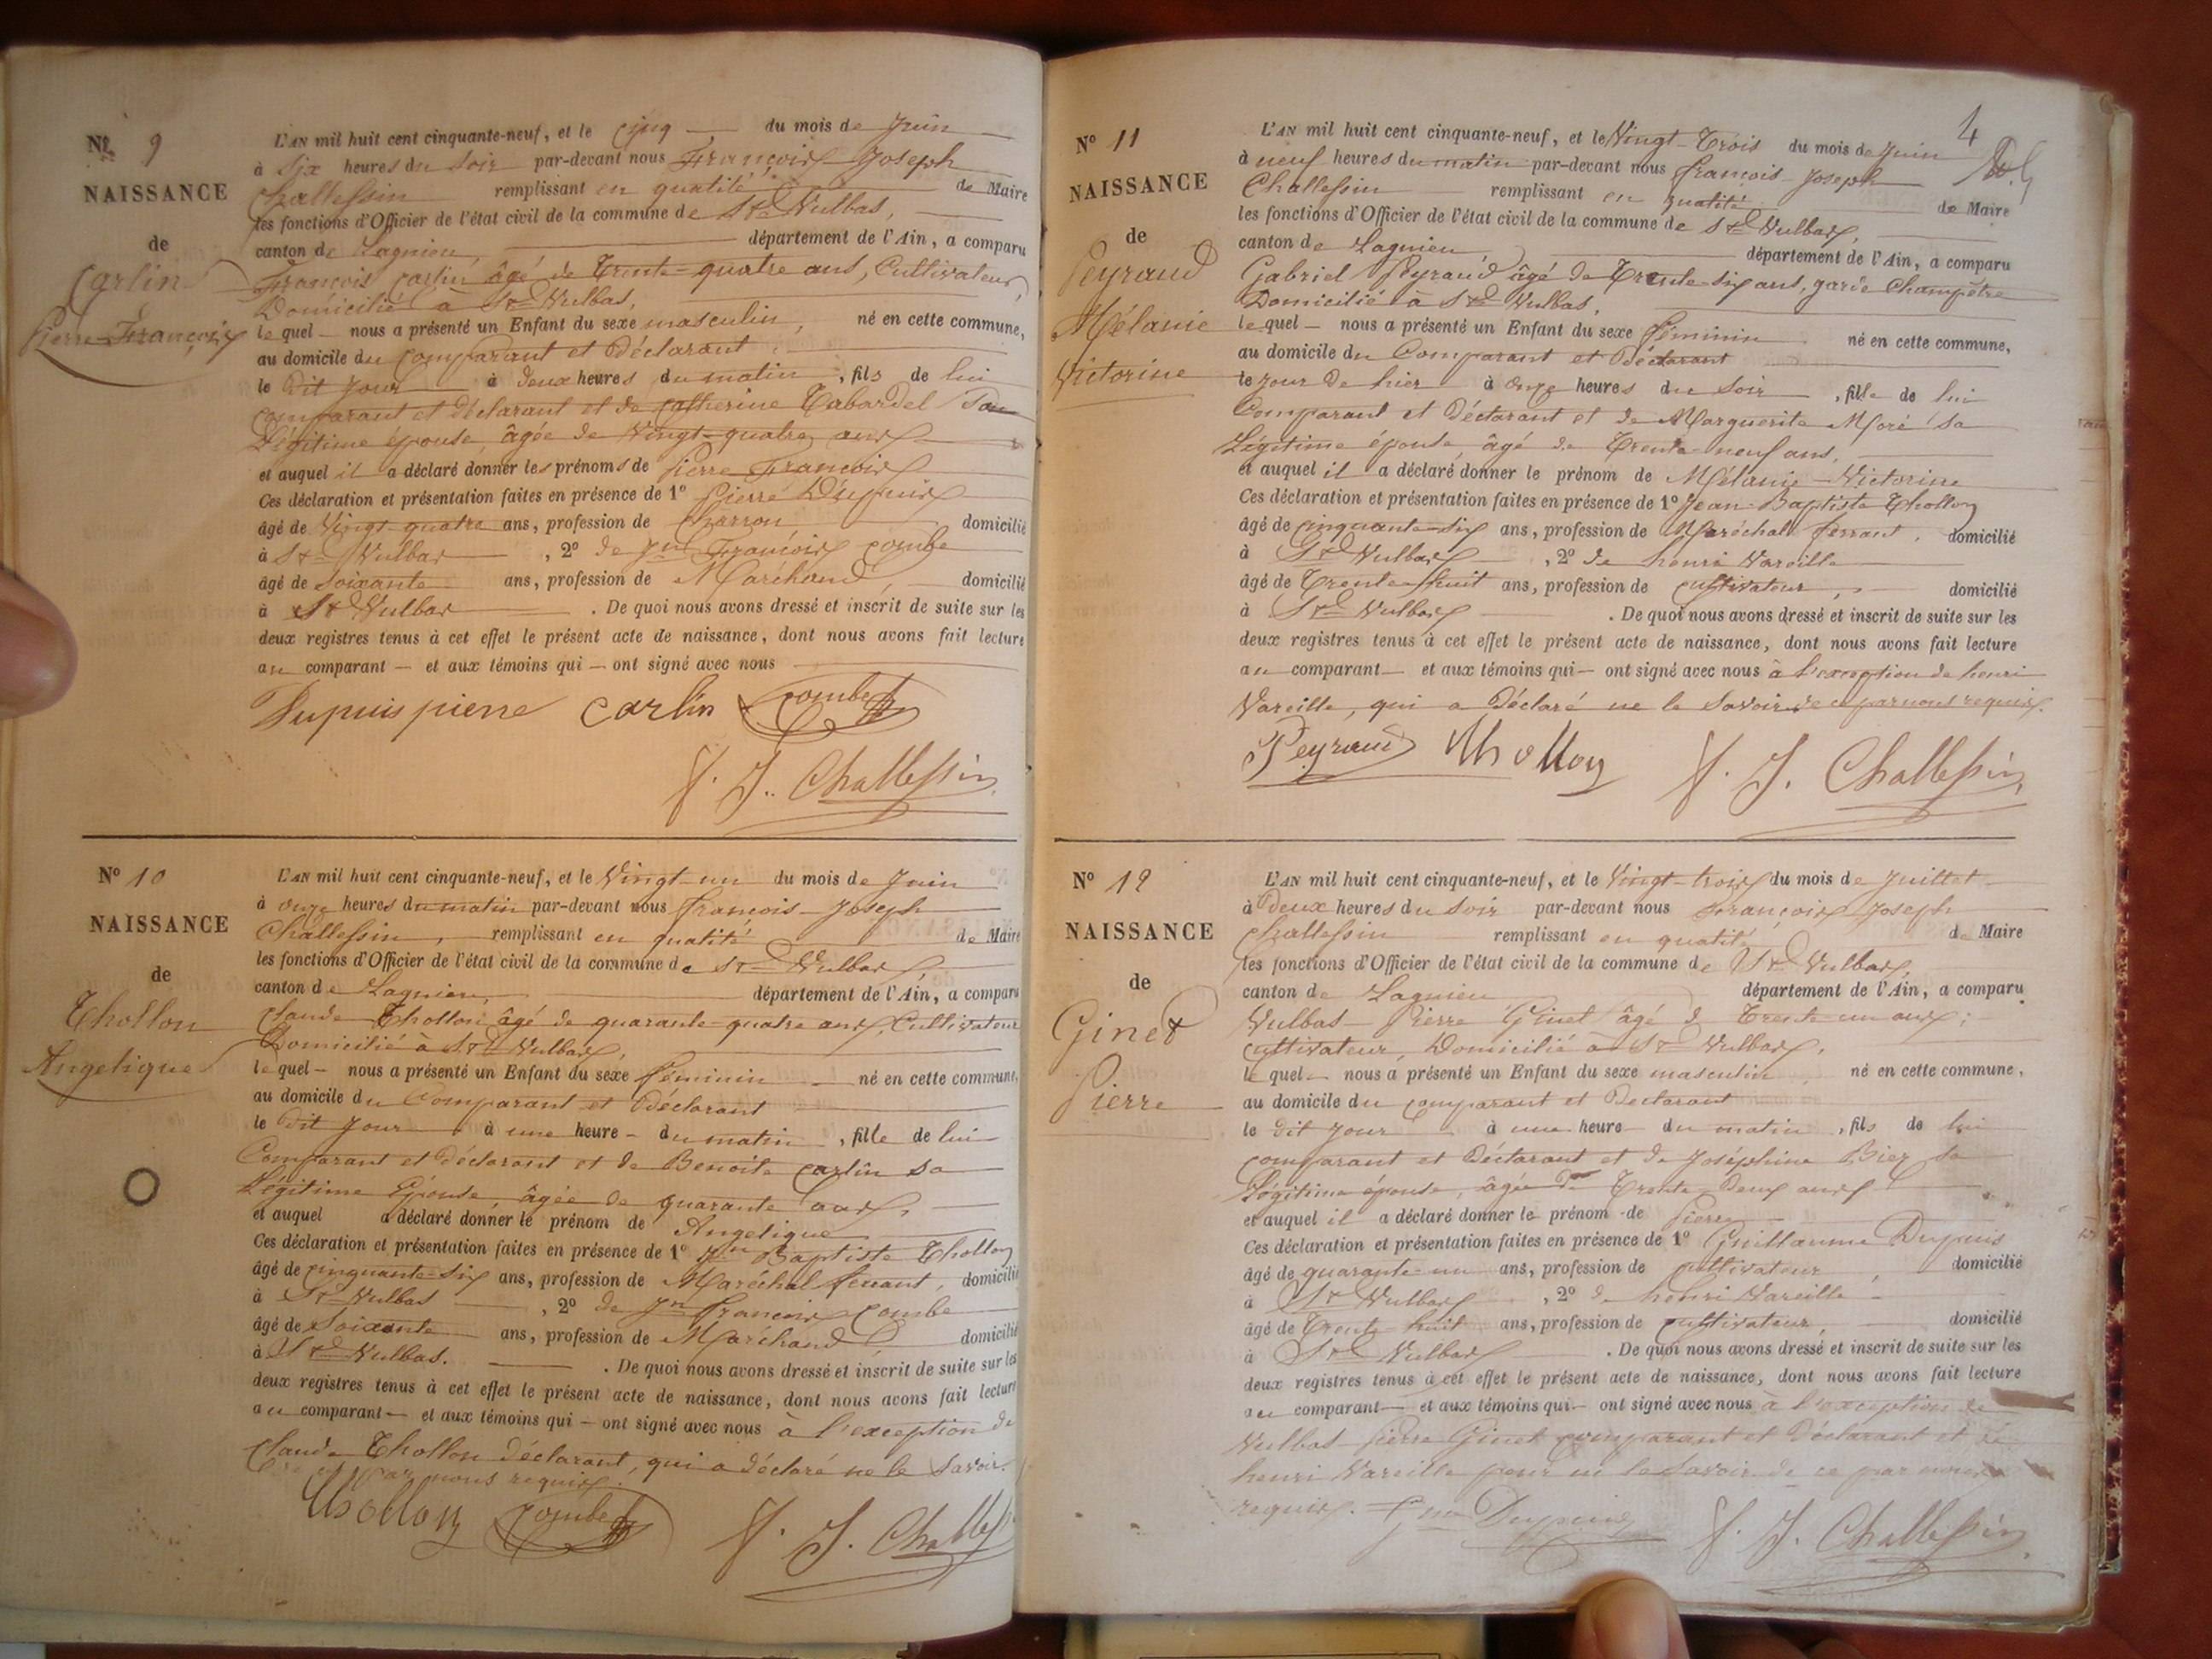 N° 9
NAISSANCE
de
Carlin
Pierre-François
L'AN mil huit cent cinquante-neuf, et le cinq du mois de Juin
à six heures du soir par-devant nous François Joseph
Challessin remplissant en qualité de Maire
les fonctions d'Officier de l'état civil de la commune de St Vulbas,
canton de Lagnieu, département de l'Ain, a comparu
François Carlin âgé de Trente-quatre ans, Cultivateur,
Domicilié à St Vulbas,
lequel nous a présenté un Enfant du sexe masculin, né en cette commune,
au domicile du Comparant et Déclarant
le dit jour à deux heures du matin, fils de lui
comparant et déclarant et de Catherine Tabardel sa
Légitime épouse, âgée de Vingt-quatre ans
et auquel il a déclaré donner les prénoms de Pierre François
Ces déclaration et présentation faites en présence de 1° Pierre Dupuis
âgé de Vingt quatre ans, profession de Charron domicilié
à St Vulbas, 2° de Jn François Combe
âgé de soixante ans, profession de Marchand, domicilié
à St Vulbas. De quoi nous avons dressé et inscrit de suite sur les
deux registres tenus à cet effet le présent acte de naissance, dont nous avons fait lecture
au comparant et aux témoins qui ont signé avec nous
Dupuis pierre Carlin Combe
f. J. Challessin
N° 10
NAISSANCE
de
Thollon
Angelique
L'AN mil huit cent cinquante-neuf, et le Vingt-un du mois de Juin
à onze heures du matin par-devant nous françois-Joseph
Challessin, remplissant en qualité de Maire
les fonctions d'Officier de l'état civil de la commune de St Vulbas
canton de Lagnieu, département de l'Ain, a comparu
Claude Thollon âgé de quarante-quatre ans, Cultivateur
Domicilié à St Vulbas,
lequel nous a présenté un Enfant du sexe féminin né en cette commune,
au domicile du Comparant et Déclarant
le dit jour à une heure du matin, fille de lui
Comparant et déclarant et de Benoite Carlin sa
Légitime Epouse, âgée de quarante ans,
et auquel a déclaré donner le prénom de Angelique
Ces déclaration et présentation faites en présence de 1° Jn Baptiste Thollon
âgé de cinquante-six ans, profession de Maréchal ferrant, domicilié
à St Vulbas, 2° de Jn françois Combe
âgé de soixante ans, profession de Marchand, domicilié
à St Vulbas. De quoi nous avons dressé et inscrit de suite sur les
deux registres tenus à cet effet le présent acte de naissance, dont nous avons fait lecture
au comparant et aux témoins qui ont signé avec nous à l'exception de
Claude Thollon déclarant, qui a déclaré ne le savoir
par nous requis.
Thollon Combe f. J. Challes
4
N° 11
NAISSANCE
de
Peyraud
Mélanie
Victorine
L'AN mil huit cent cinquante-neuf, et le Vingt-Trois du mois de Juin
à neuf heures du matin par-devant nous françois Joseph
Challessin remplissant en qualité de Maire
les fonctions d'Officier de l'état civil de la commune de St Vulbas,
canton de Lagnieu, département de l'Ain, a comparu
Gabriel Peyraud âgé de Trente-six ans, garde champêtre
Domicilié à St Vulbas,
lequel nous a présenté un Enfant du sexe féminin né en cette commune,
au domicile du Comparant et Déclarant
le jour de hier à onze heures du soir, fille de lui
Comparant et Déclarant et de Marguerite Moré sa
Légitime épouse, âgé de Trente neuf ans,
et auquel il a déclaré donner le prénom de Mélanie-Victorine
Ces déclaration et présentation faites en présence de 1° Jean-Baptiste Thollon
âgé de cinquante-six ans, profession de Maréchal ferrant, domicilié
à St Vulbas, 2° de henri Vareille
âgé de Trente-huit ans, profession de cultivateur, domicilié
à St Vulbas. De quoi nous avons dressé et inscrit de suite sur les
deux registres tenus à cet effet le présent acte de naissance, dont nous avons fait lecture
au comparant et aux témoins qui ont signé avec nous à l'exception de henri
Vareille, qui a déclaré ne le savoir de ce par nous requis.
Peyraud Thollon f. J. Challessin
N° 12
NAISSANCE
de
Ginet
Pierre
L'AN mil huit cent cinquante-neuf, et le Vingt-trois du mois de Juillet
à Deux heures du soir par-devant nous françois Joseph
Challessin remplissant en qualité de Maire
les fonctions d'Officier de l'état civil de la commune de St Vulbas,
canton de Lagnieu département de l'Ain, a comparu
Vulbas-Pierre Ginet âgé de Trente-un ans,
cultivateur, Domicilié à St Vulbas,
lequel nous a présenté un Enfant du sexe masculin, né en cette commune,
au domicile du comparant et Declarant
le dit jour à une heure du matin, fils de lui
comparant et Déclarant et de Joséphine Bier sa
Légitime épouse, âgée de Trente-Deux ans
et auquel il a déclaré donner le prénom de Pierre
Ces déclaration et présentation faites en présence de 1° Guillaume Dupuis
âgé de quarante-un ans, profession de cultivateur, domicilié
à St Vulbas, 2° de henri Vareille
âgé de Trente-huit ans, profession de cultivateur, domicilié
à St Vulbas. De quoi nous avons dressé et inscrit de suite sur les
deux registres tenus à cet effet le présent acte de naissance, dont nous avons fait lecture
au comparant et aux témoins qui ont signé avec nous à l'exception de
Vulbas-Pierre Ginet comparant et Déclarant et de
henri Vareille pour ne le savoir de ce par nous
requis. Gme Dupuis f. J. Challessin